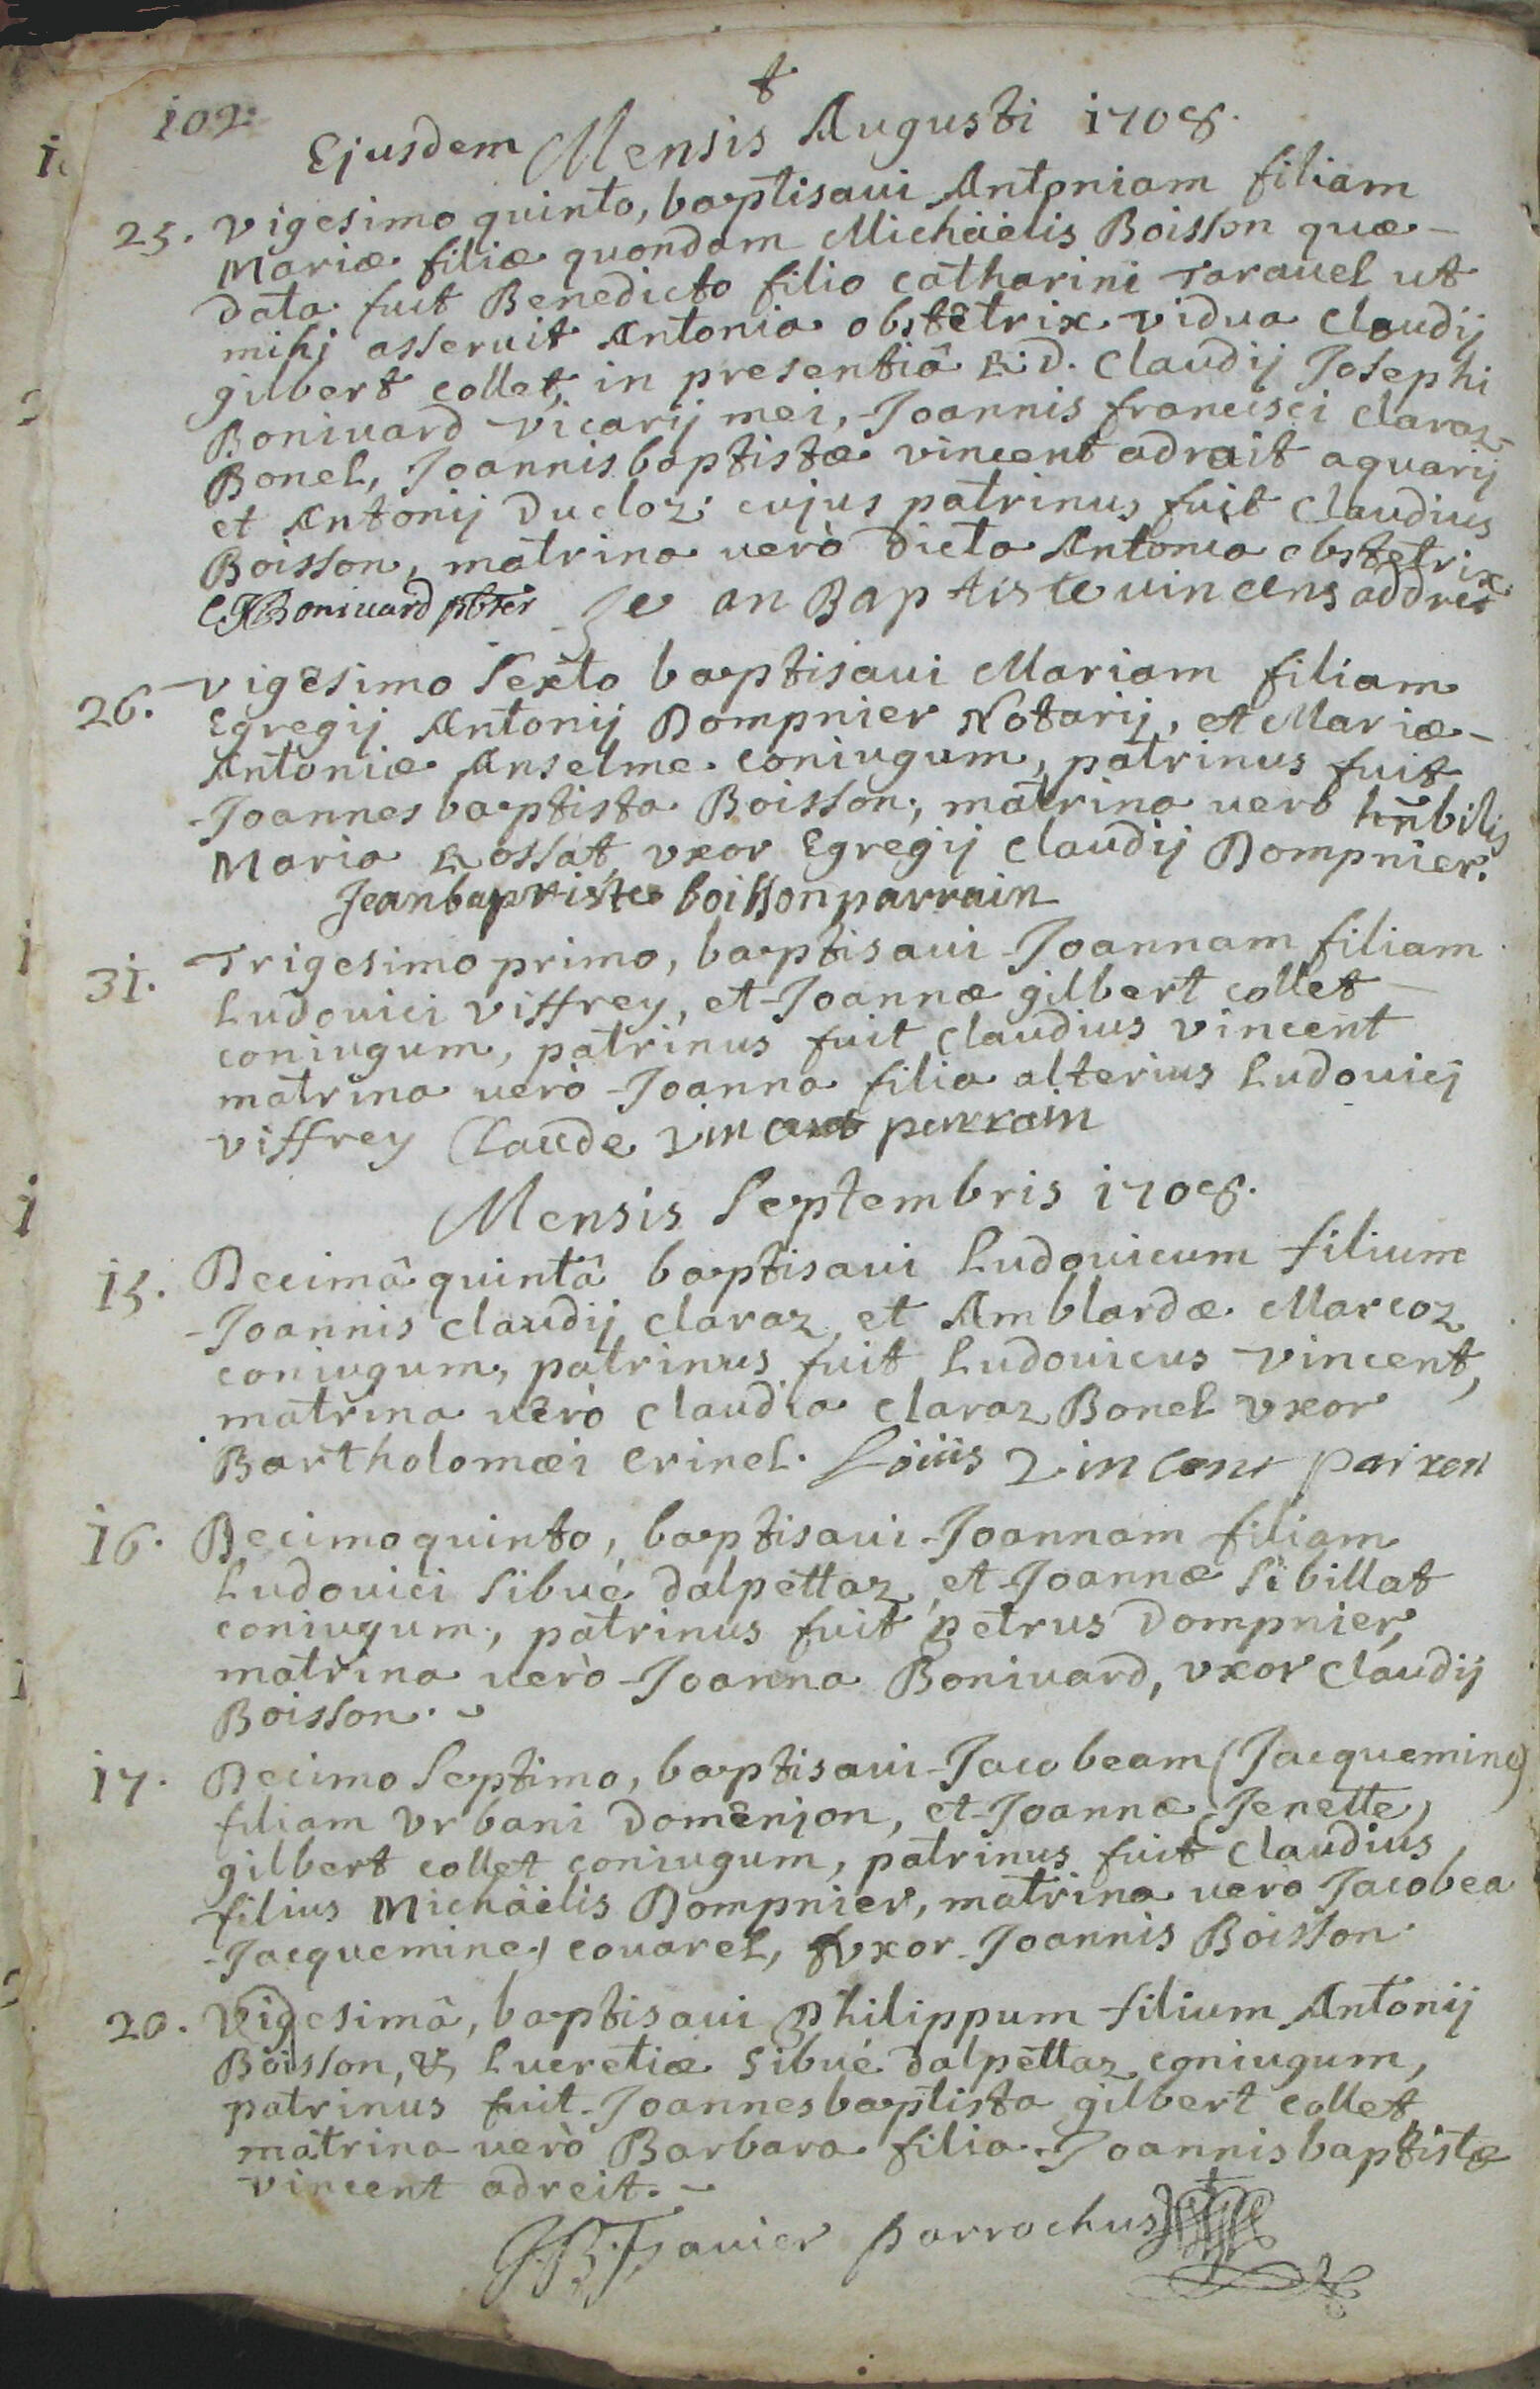 102.
Ejusdem Mensis Augusti 1708.
25. Vigesimo quinto, baptisaui Antoniam filiam
Mariæ filiæ quondam Michäelis Boisson quæ
data fuit Benedicto filio Catharini Tarauel ut
mihj asseruit Antonia obstetrix vidua Claudij
gilbert collet, in presentiâ R: D. Claudij Josephi
Boniuard Vicarij mei, Joannis francisci Claraz
Bonel, Joannisbaptistæ vincent adrait aquarij
et Antonij Ducloz: cujus patrinus fuit Claudius
Boisson, matrina verò Dicta Antonia obstetrix.
C J Boniuard pbter Je an Baptiste uincens addret
26. Vigesimo Sexto baptisaui Mariam filiam
Egregij Antonij Dompnier Notarij, et Mariæ
Antoniæ Anselme coniugum, patrinus fuit
Joannes baptista Boisson, matrina uero hñbilis
Maria Rossat, vxor Egregij Claudij Dompnier.
Jeanbaptiste boisson parrain
31. Trigesimo primo, baptisaui Joannam filiam
Ludouici Viffrey, et Joannæ gilbert collet
coniugum, patrinus fuit Claudius vincent
matrina uerò Joanna filia alterius Ludouicj
Viffrey Claude vincent perrain
Mensis Septembris 1708.
15. Decimâ quintâ baptisaui Ludouicum filium
Joannis Claudij Claraz, et Amblardæ Marcoz
coniugum, patrinus fuit Ludouicus Vincent,
matrina uerò Claudia Claraz Bonel vxor
Bartholomæi Crinel. Loüis Vincent pairen
16. Decimo quinto, baptisaui Joannam filiam
Ludouici Sibué dalpettaz, et Joannæ Sibillat
coniugum, patrinus fuit petrus Dompnier,
matrina uerò Joanna Boniuard, vxor Claudij
Boisson.
17. Decimo Septimo, baptisaui Jacobeam (Jacquemine)
filiam Vrbani Domenjon, et Joannæ (Jenette)
gilbert collet coniugum, patrinus fuit Claudius
filius Michäelis Dompnier, matrina uero Jacobea
Jacquemine) couarel, vxor Joannis Boisson
20. Vigesimâ, baptisaui Philippum filium Antonij
Boisson, & Lucretiæ Sibué dalpettaz coniugum,
patrinus fuit Joannesbaptista gilbert collet
matrina uerò Barbara filia Joannisbaptistæ
vincent adreit.
parrochus